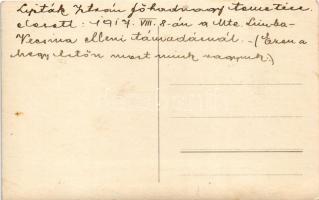 Lipták István főhadnagy temetése
elesett: 1917. VIII. 8-án a Mte. Limba-
Vecsma elleni támadásnál. - (Ezen a
hegytetőn most mink vagyunk.)